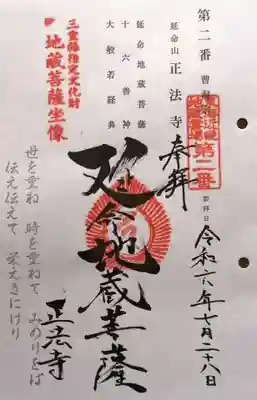 第二番
延命山 正法寺
延命地蔵菩薩
十六善神
大般若経典
三重県指定文化財
地蔵菩薩坐像
第二番
参拝日
令和六年七月二十八日
奉拝
延命地蔵菩薩
正法寺
世を重ね 時を重ねて みのりをば
伝え伝えて 栄えきにけり